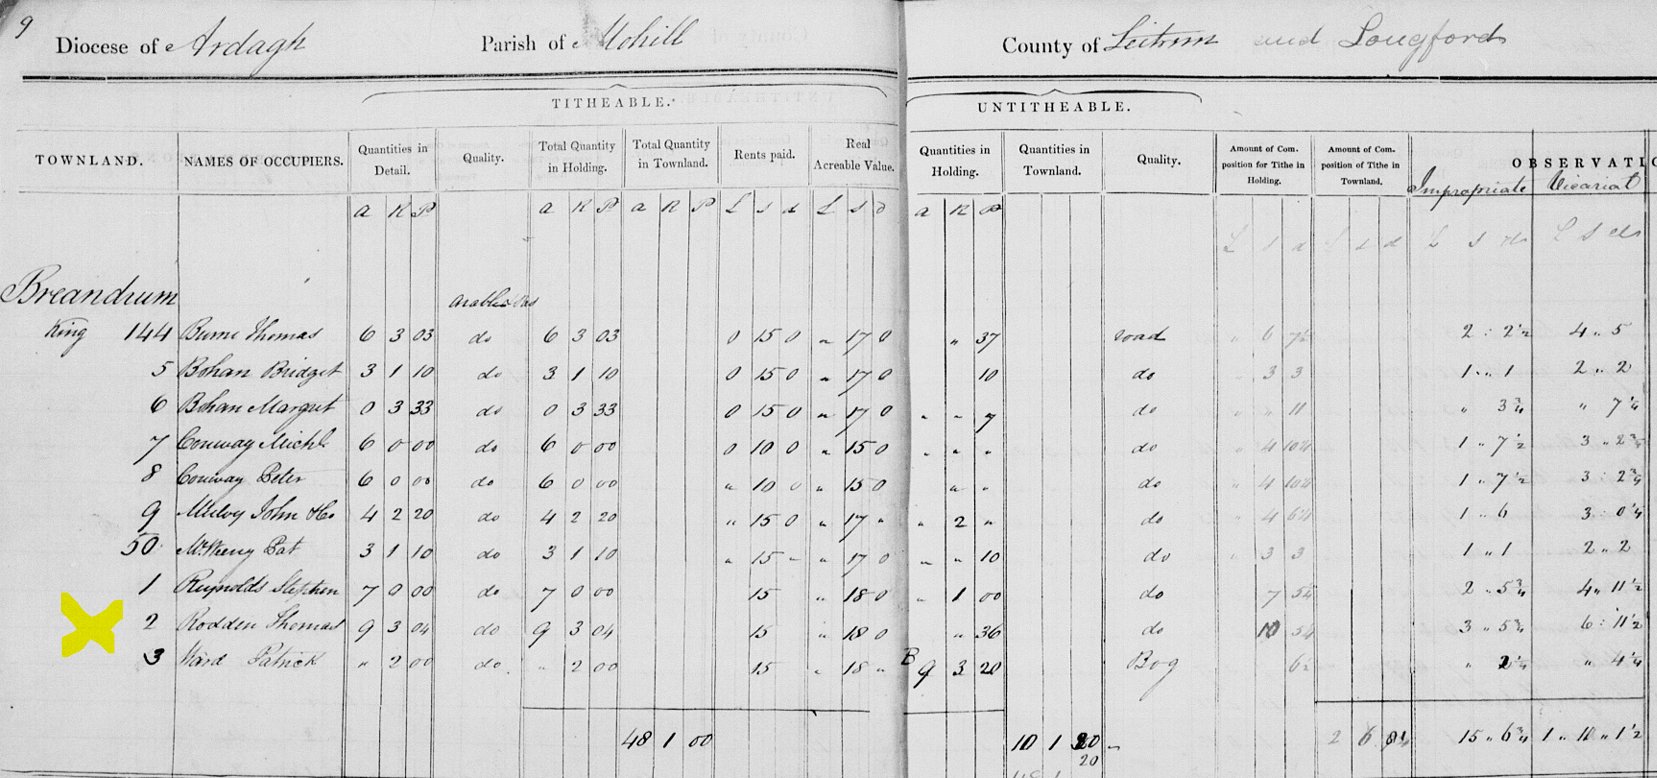 9
Diocese of Ardagh Parish of Mohill County of Leitrim and Longford
TITHEABLE. UNTITHEABLE.
TOWNLAND. NAMES OF OCCUPIERS. Quantities in Detail. Quality. Total Quantity in Holding. Total Quantity in Townland. Rents paid. Real Acreable Value. Quantities in Holding. Quantities in Townland. Quality. Amount of Com. position for Tithe in Holding. Amount of Com. position of Tithe in Townland. OBSERVATIO
Impropriate Vicarial
A R P A R P A R P £ s d £ s d A R P £ s d £ s d £ s d £ s d
Breandrum arable
King 144 Burns Thomas 6 3 03 do 6 3 03 0 15 0 " 17 0 " 37 road " 6 7½ 2 : 2½ 4 " 5
5 Bohan Bridget 3 1 10 do 3 1 10 0 15 0 " 17 0 10 do 3 3 1 " 1 2 " 2
6 Bohan Margret 0 3 33 do 0 3 33 0 15 0 " 17 0 " " 7 do " 11 " 3¾ " 7¼
7 Conway Michl 6 0 00 do 6 0 00 0 10 0 " 15 0 " " " do " 4 10¼ 1 " 7½ 3 " 2¾
8 Conway Peter 6 0 00 do 6 0 00 " 10 0 " 15 0 " " do " 4 10¼ 1 " 7½ 3 : 2¾
9 Mulvy John & Co 4 2 20 do 4 2 20 " 15 0 " 17 " " 2 " do " 4 6¼ 1 " 6 3 : 0¼
50 Pat 3 1 10 do 3 1 10 " 15 – " 17 0 " " 10 do " 3 3 1 " 1 2 " 2
1 Reynolds Stephen 7 0 00 do 7 0 00 15 " 18 0 " 1 00 do 7 5¼ 2 " 5¾ 4 " 11½
2 Rodden Thomas 9 3 04 do 9 3 04 15 " 18 0 " 36 do 10 5¼ 3 " 5¾ 6 : 11½
3 Ward Patrick " 2 00 do " 2 00 15 " 18 " B 9 3 20 Bog 6½ " 2¼ " 4¼
48 1 00 10 1 20 " 2 6 8¼ 15 " 6¾ 1 " 11 " 1½
20